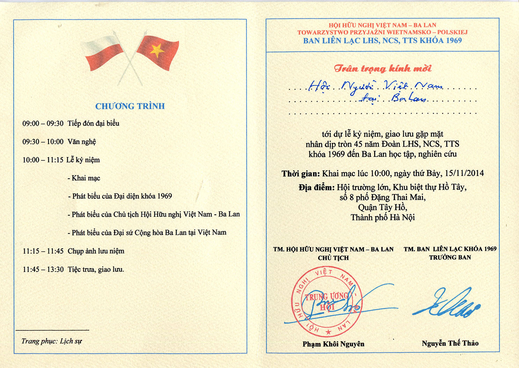 CHƯƠNG TRÌNH
09:00 – 09:30 Tiếp đón đại biểu
09:30 – 10:00 Văn nghệ
10:00 – 11:15 Lễ kỷ niệm
- Khai mạc
- Phát biểu của Đại diện khóa 1969
- Phát biểu của Chủ tịch Hội Hữu nghị Việt Nam - Ba Lan
- Phát biểu của Đại sứ Cộng hòa Ba Lan tại Việt Nam
11:15 – 11:45 Chụp ảnh lưu niệm
11:45 – 13:30 Tiệc trưa, giao lưu.
Trang phục: Lịch sự
HỘI HỮU NGHỊ VIỆT NAM – BA LAN
TOWARZYSTWO PRZYJAŹNI WIETNAMSKO – POLSKIEJ
BAN LIÊN LẠC LHS, NCS, TTS KHÓA 1969
Trân trọng kính mời
Hội Người Việt Nam
tại Ba Lan
tới dự lễ kỷ niệm, giao lưu gặp mặt
nhân dịp tròn 45 năm Đoàn LHS, NCS, TTS
khóa 1969 đến Ba Lan học tập, nghiên cứu
Thời gian: Khai mạc lúc 10:00, ngày thứ Bảy, 15/11/2014
Địa điểm: Hội trường lớn, Khu biệt thự Hồ Tây,
số 8 phố Đặng Thai Mai,
Quận Tây Hồ,
Thành phố Hà Nội
TM. HỘI HỮU NGHỊ VIỆT NAM – BA LAN
CHỦ TỊCH
TM. BAN LIÊN LẠC KHÓA 1969
TRƯỞNG BAN
HỘI HỮU NGHỊ VIỆT NAM - BA LAN
TRUNG ƯƠNG
HỘI
Phạm Khôi Nguyên
Nguyễn Thế Thảo